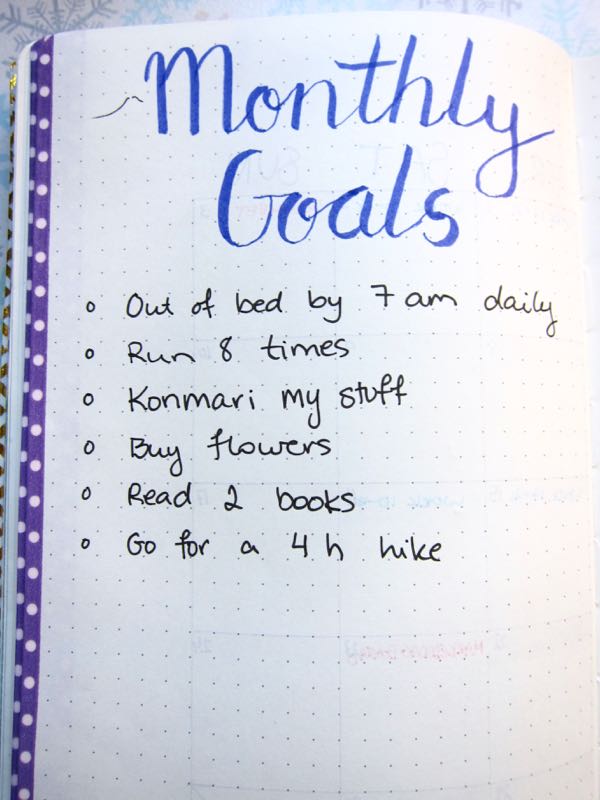 Monthly
Goals
o Out of bed by 7 am daily
o Run 8 times
o Konmari my stuff
o Buy flowers
o Read 2 books
o Go for a 4 h hike